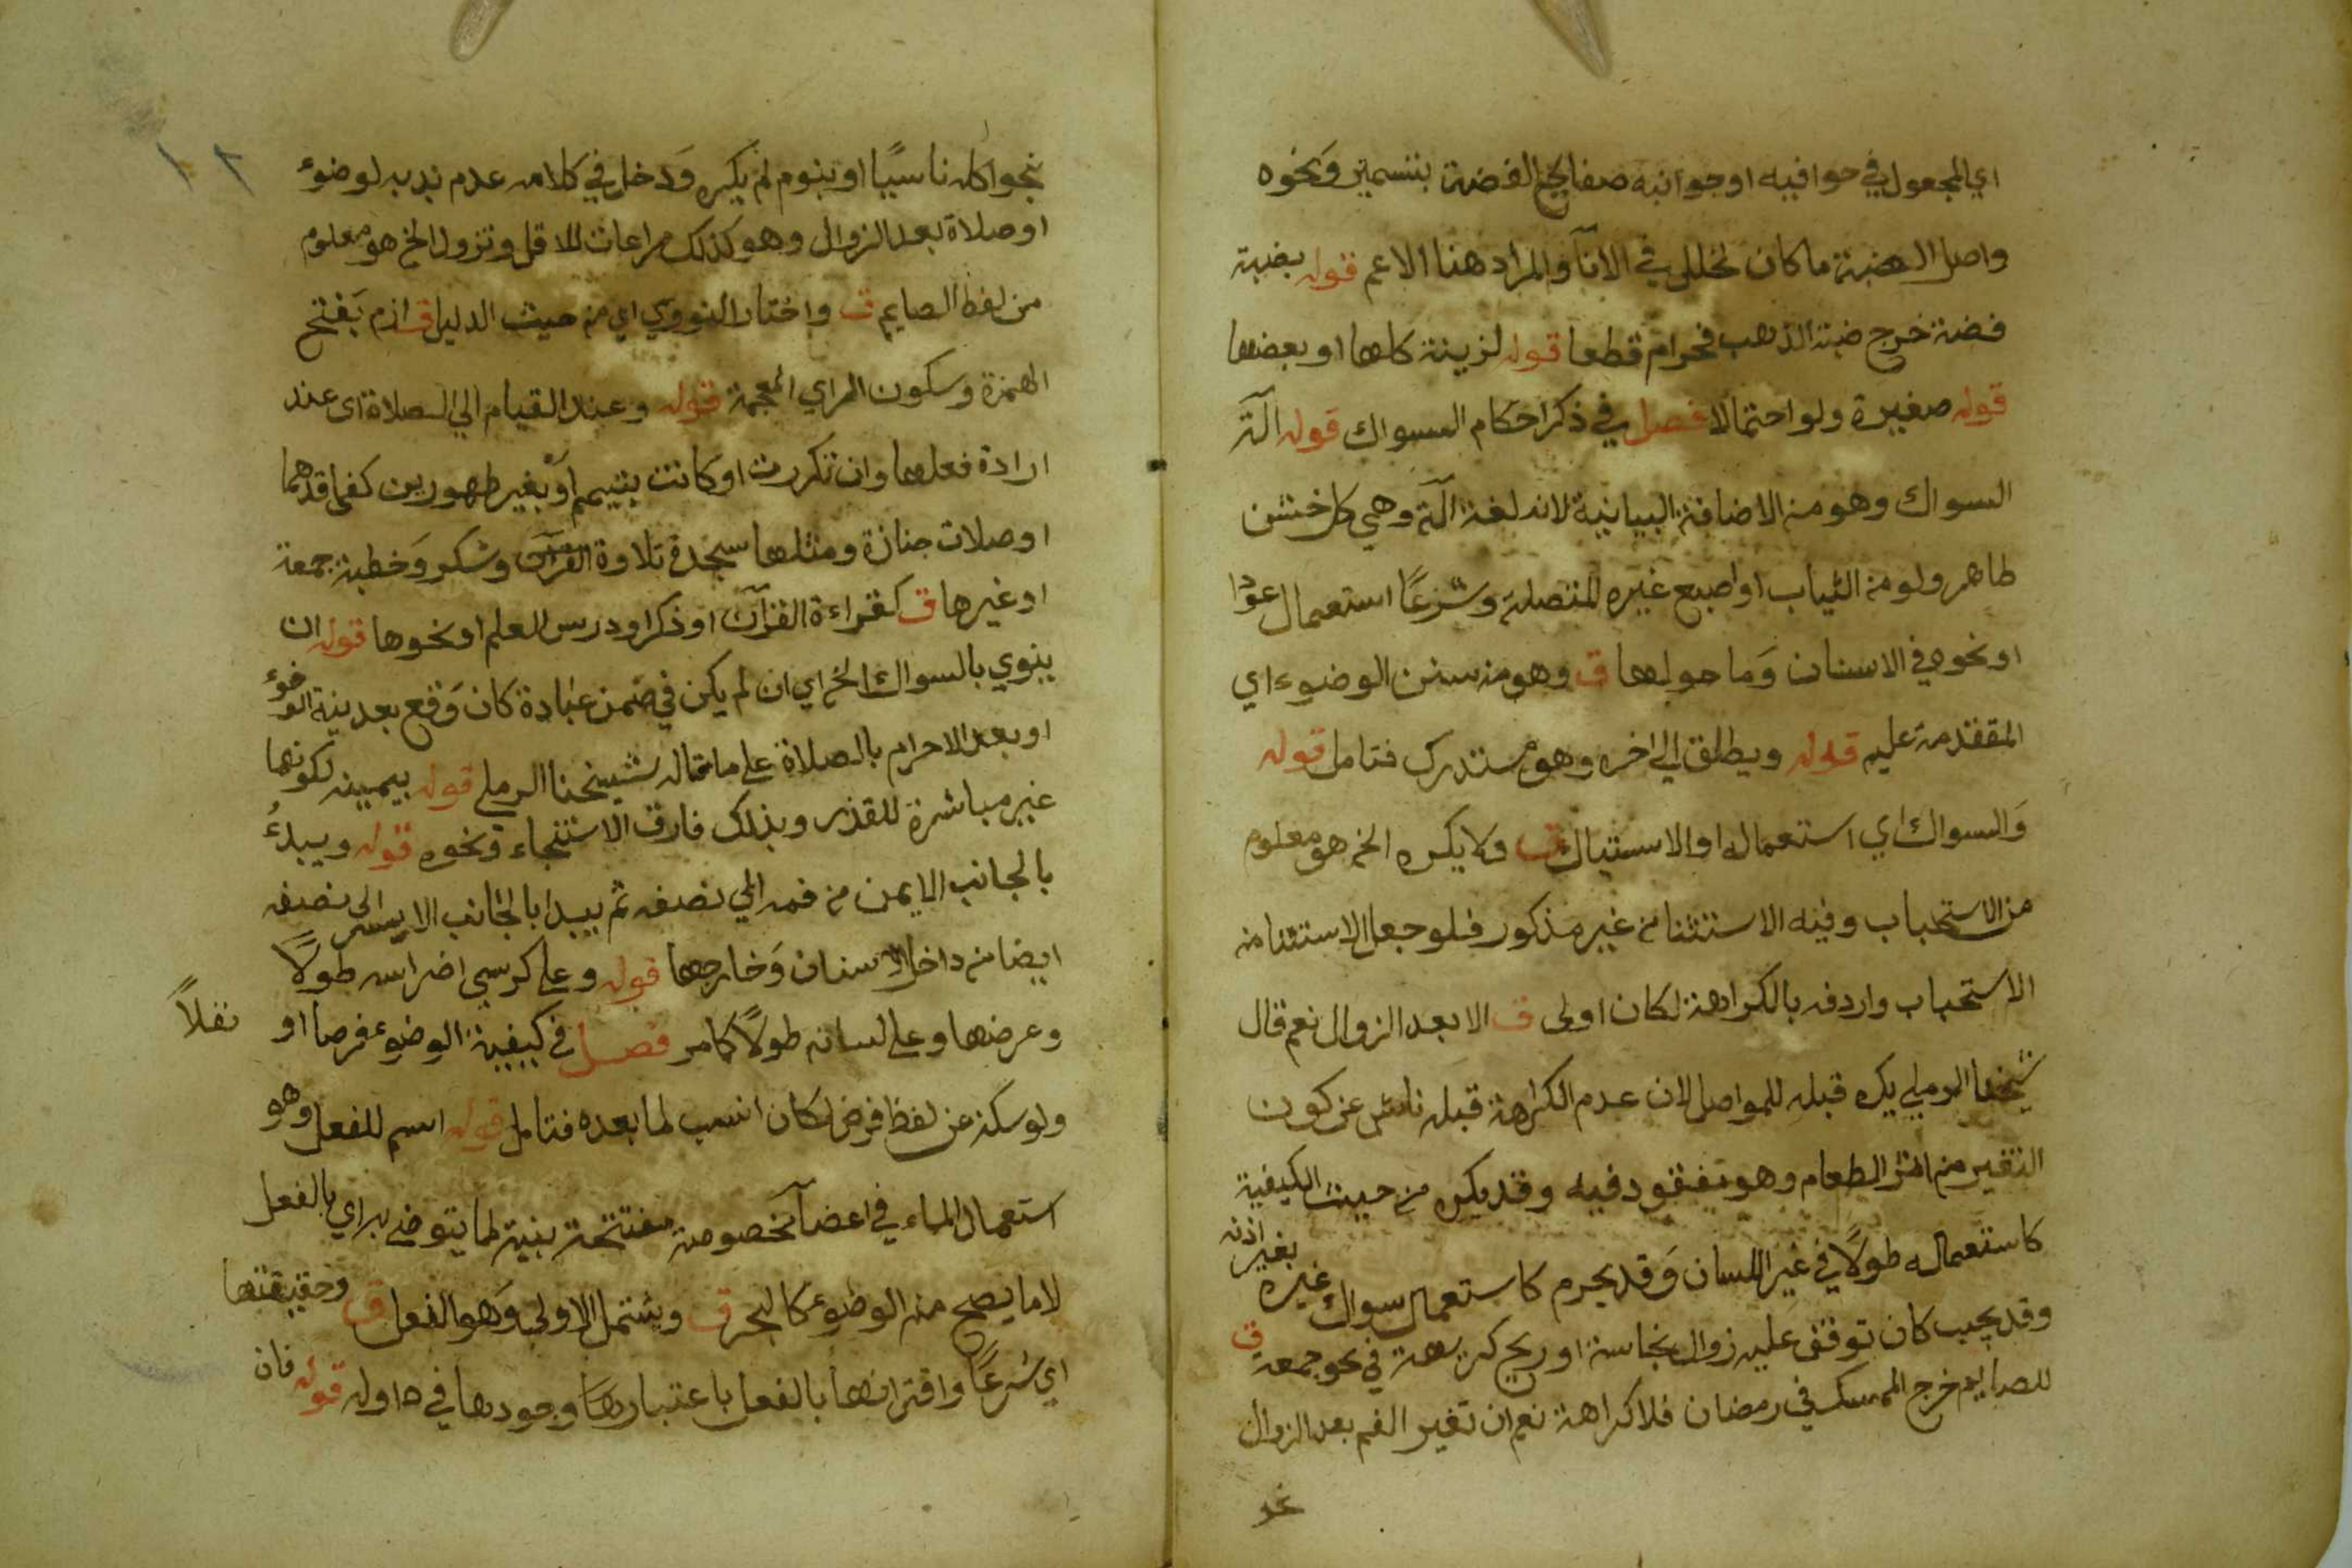 اي المجعول في حوافيه او جوانبه صفايح الفضة بتسمير وَنحوه
واصل الضبة ما كان لخلل في الانآ والمراد هنا الاعم قوله بضبة
فضة خرج ضبة الذهب فحرام قطعا قوله لزينة كلها او بعضها
قوله صغيرة ولو احتمالا فصل في ذكر احكام السواك قوله آلة
السواك وهو من الاضافة البيانية لانه لغة آلة وهي كل خشن
طاهر ولو من الثياب او اصبع غيره المتصلة وشرعًا استعمال عود
او نحوه في الاسنان وَما حولها ق وهو من سنن الوضوء اي
المتقدمة عليه قوله ويطلق الي اخره وهو مستدرك فتامل قوله
وَالسواك اي استعماله او الاستياك ق ولا يكره الخ هو معلوم
من الاستحباب وفيه الاستثنا من غير مذكور فلو جعل الاستثنا من
الاستحباب واردفه بالكراهة لكان اولى ق الا بعد الزوال نعم قال
شيخنا الرملي يكره قبله للمواصل لان عدم الكراهة قبله ناش عن كون
التغير من اثر الطعام وهو مفقود فيه وقد يكره من حيث الكيفية
كاستعماله طولًا في غير اللسان وَقد يحرم كاستعمال سواك غيره بغير اذنه
وقد يجب كان توقف عليه زوال نجاسة او ريح كريهة في نحو جمعة ق
للصايم خرج الممسك في رمضان فلا كراهة نعم ان تغير الفم بعد الزوال
نحو
١٢
بنحو اكله ناسيًا او بنوم لم يكره وَدخل في كلامه عدم ندبه لوضوء
او صلاة بعد الزوال وهو كذلك مراعات للاقل وتزول الخ هو معلوم
من لفظ الصايم ق واختار النووي اي من حيث الدليل ق ازم بَفتح
الهمزة وسكون الزاي المعجمة قوله وعند القيام الي الصلاة اى عند
ارادة فعلها وان تكررت او كانت بتيمم اوْ بغير طهورين كفاقدهما
او صلات جنازة ومثلها سجدة تلاوة القرآن وشكر وَخطبة جمعة
او غيرها ق كقراءة القرآن او ذكر او درس العلم او نحوها قوله ان
ينوي بالسواك الخ اي ان لم يكن في ضمن عبادة كان وَقع بعد نية الوضوء
او بعد الاحرام بالصلاة على ما قاله شيخنا الرملي قوله بيمينه لكونها
غير مباشرة للقذر وبذلك فارق الاستنجاء وَنحوه قوله ويبدءُ
بالجانب الايمن من فمه الي نصفه ثم يبدا بالجانب الايسر الى نصفه
ايضا من داخل الاسنان وَخارجها قوله وعلى كرسي اضراسه طولًا
وعرضها وعلى لسانه طولًا كما مر فصل في كيفية الوضوء فرضا او نفلاً
ولو سكت عن لفظ فرض لكان انسب لما بعده فتامل قوله اسم للفعل وهو
استعمال الماء في اعضآ مخصوصة مفتتحة بنية لما يتوضى به اي بالفعل
لا ما يصح منه الوضوء كالبحر ق ويشتمل الاولى وَهو الفعل ق وحقيقتها
اي شرعًا واقترانها بالفعل باعتبارها وجودها في اوله قوله فان